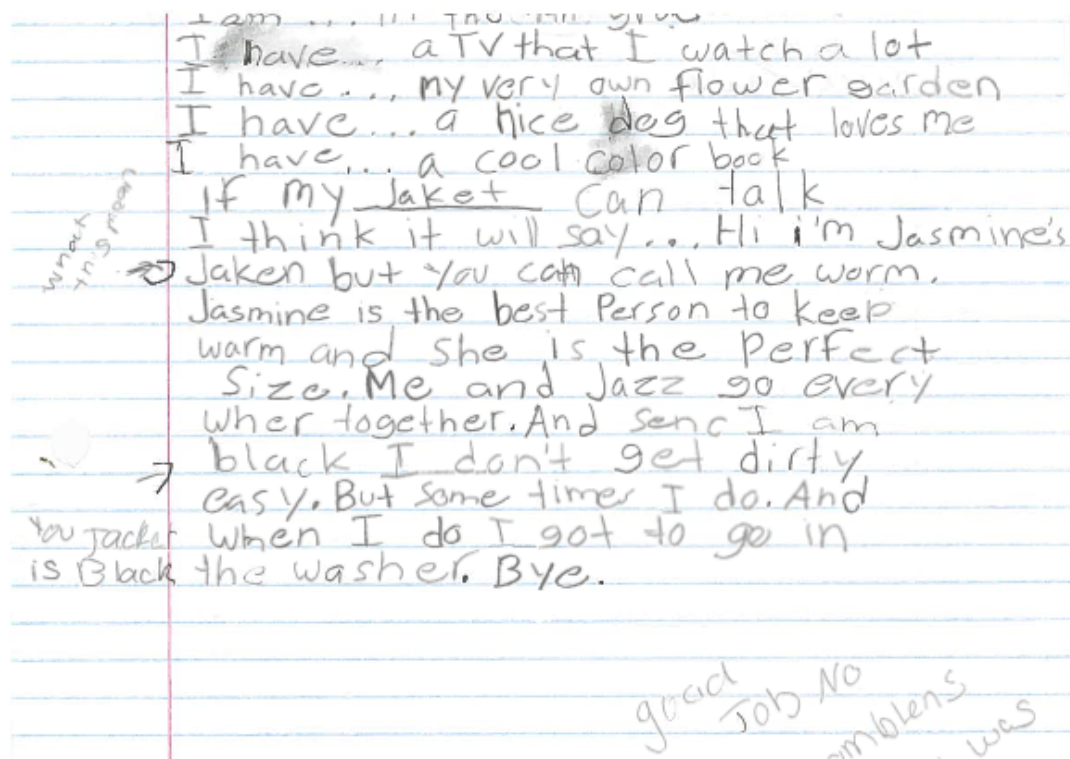 I am ... in
I have... a TV that I watch a lot
I have... my very own flower garden
I have... a nice dog that loves me
I have... a cool color book
If my Jaket can talk
I think it will say... Hi i'm Jasmine's
Jaken but you can call me worm.
Jasmine is the best Person to keep
warm and she is the perfect
size. Me and Jazz go every
wher together. And senc I am
black I don't get dirty
easy. But some times I do. And
when I do I got to go in
the washer. Bye.
You Jacket
is Black
good
Job No
was